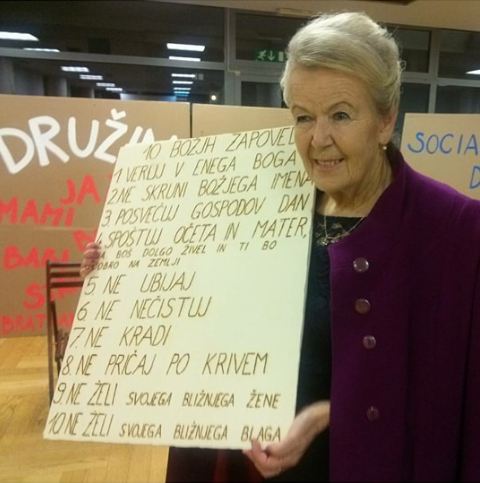 DRUŽIN
JA
MAMI
BRAT
SOCIA
D
10 BOŽJH ZAPOVED
1 VERUJ V ENEGA BOGA
2 NE SKRUNI BOŽJEGA IMENA
3 POSVEČUJ GOSPODOV DAN
4 SPOŠTUJ OČETA IN MATER,
DA BOŠ DOLGO ŽIVEL IN TI BO
DOBRO NA ZEMLJI
5 NE UBIJAJ
6 NE NEČISTUJ
7 NE KRADI
8 NE PRIČAJ PO KRIVEM
9 NE ŽELI SVOJEGA BLIŽNJEGA ŽENE
10 NE ŽELI SVOJEGA BLIŽNJEGA BLAGA